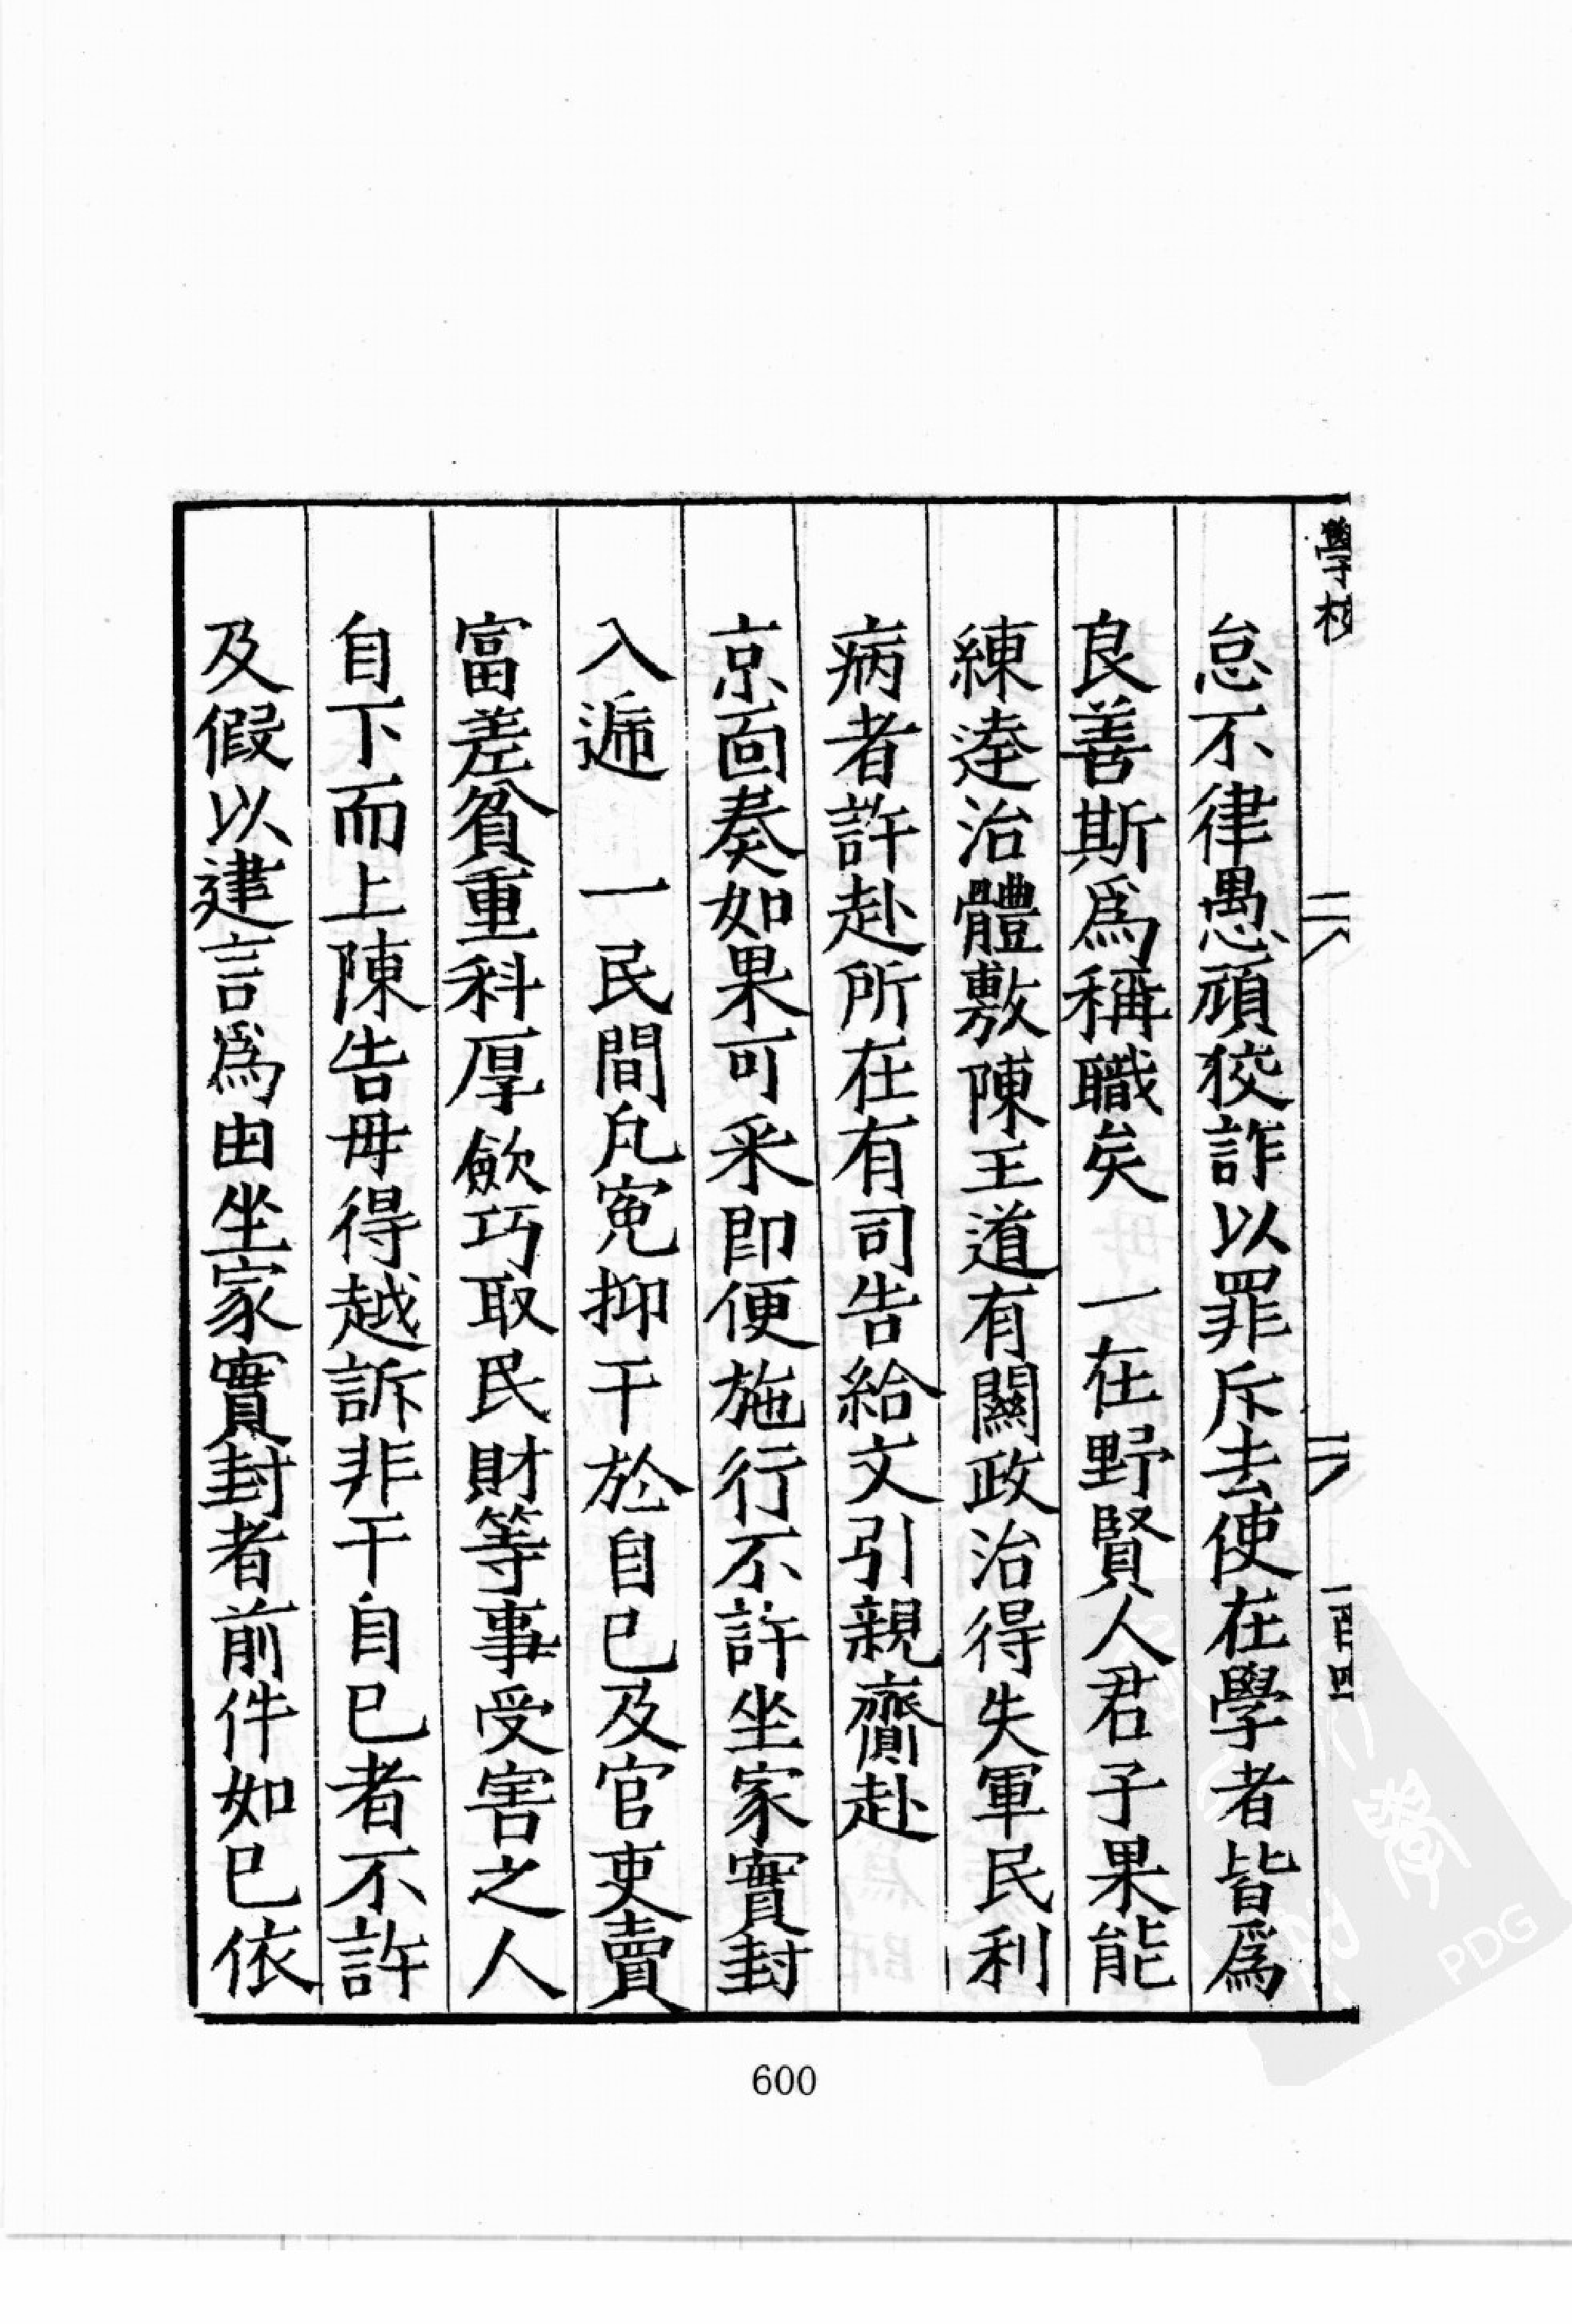 學校
一百四
怠不律愚頑狡詐以罪斥去使在學者皆爲
良善斯爲稱職矣 一在野賢人君子果能
練達治體敷陳王道有關政治得失軍民利
病者許赴所在有司告給文引親齎赴
京面奏如果可采即便施行不許坐家實封
入遞 一民間凡寃抑干於自已及官吏賣
富差貧重科厚歛巧取民財等事受害之人
自下而上陳告毋得越訴非干自已者不許
及假以建言爲由坐家實封者前件如已依
600
PDG